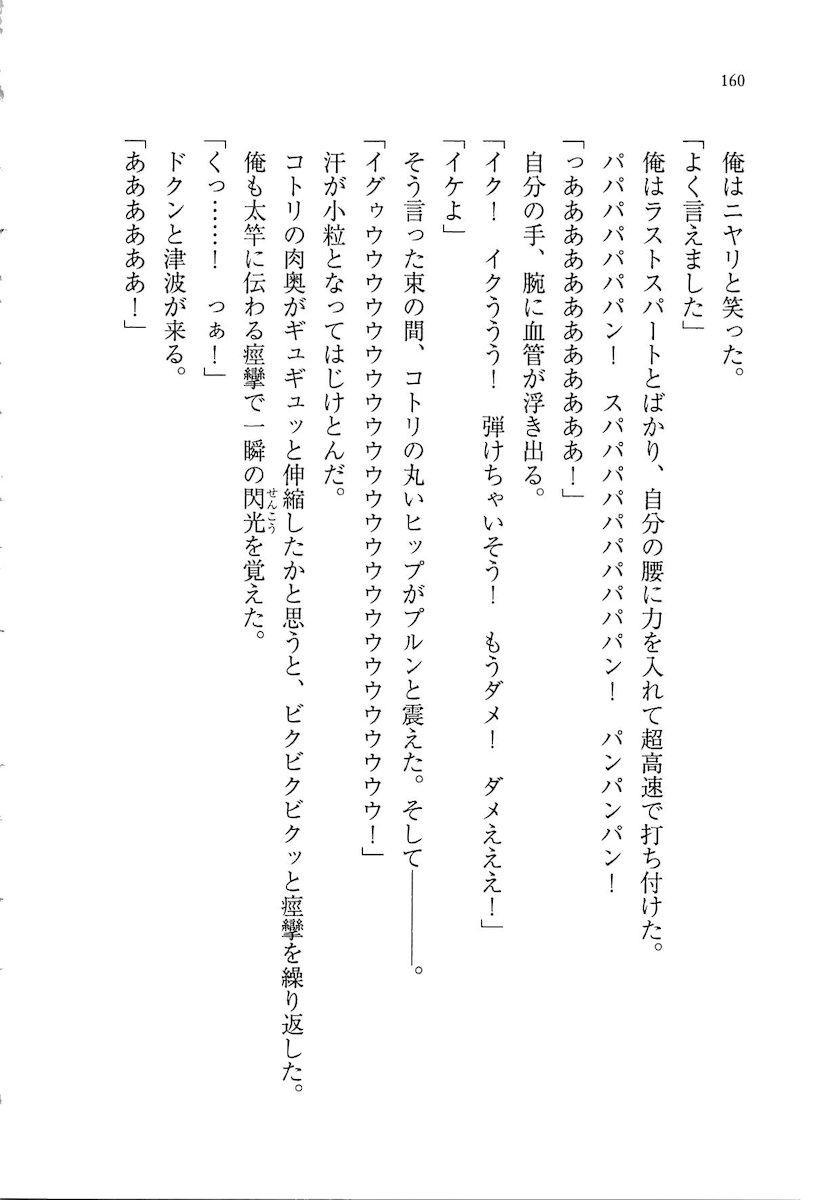 160
俺はニヤリと笑った。
「よく言えました」
俺はラストスパートとばかり、自分の腰に力を入れて超高速で打ち付けた。
パパパパパパパン！　スパパパパパパパパパン！　パンパンパン！
「っああああああああああああ！」
自分の手、腕に血管が浮き出る。
「イク！　イクううう！　弾けちゃいそう！　もうダメ！　ダメえええ！」
「イケよ」
そう言った束の間、コトリの丸いヒップがプルンと震えた。そして――――。
「イグゥウウウウウウウウウウウウウウウウウウウウウウ！」
汗が小粒となってはじけとんだ。
コトリの肉奥がギュギュッと伸縮したかと思うと、ビクビクビクッと痙攣を繰り返した。
俺も太竿に伝わる痙攣で一瞬の閃光せんこうを覚えた。
「くっ……！　っぁ！」
ドクンと津波が来る。
「ああああああ！」